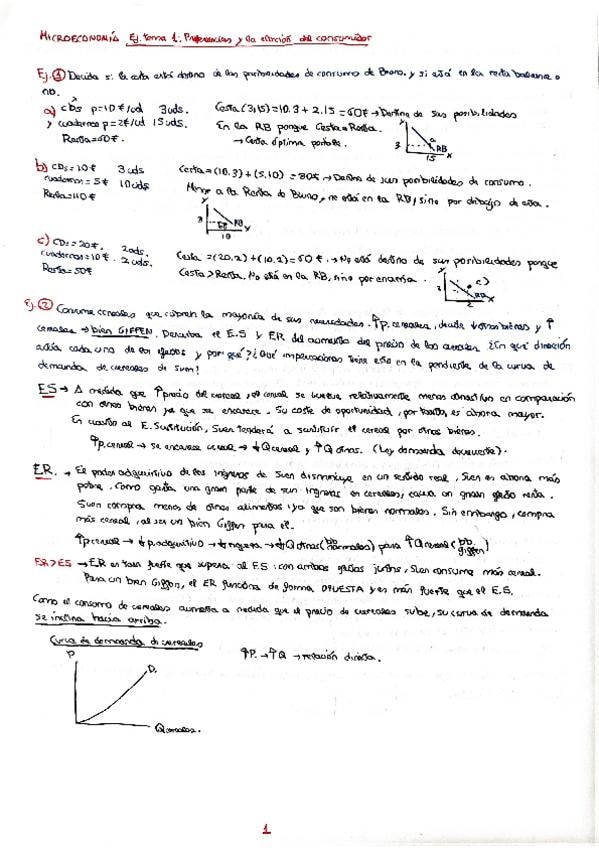 MICROECONOMÍA Ej. tema 1: Preferencias y la elección del consumidor
Ej. 1 Decida si la cesta está dentro de las posibilidades de consumo de Bruno, y si está en la recta balance o
no.
a) CDs p=10€/ud 3uds.
y cuadernos p=2€/ud 15uds.
Renta=60€.
Cesta (3,15)=10.3+2.15=60€ → Dentro de sus posibilidades
En la RB porque Cesta=Renta.
→ Cesta óptima
y
3
a
RB
15
x
b) CDs=10€ 3uds
cuadernos=5€ 10uds
Renta=110€
Cesta=(10.3)+(5.10)=80€ → Dentro de sus posibilidades de consumo.
a la Renta de Bruno, no está en la RB, sino por debajo de ella.
y
3
RB
10
x
c) CDs=20€. 2uds.
cuadernos=10€. 2uds.
Renta=50€
Cesta=(20.2)+(10.2)=60€. → No está dentro de sus posibilidades porque
Cesta>Renta. No está en la RB, sino por encima.
y
2
c)
RB
2
x
Ej. 2 Consume cereales que cubren la mayoría de sus necesidades. ↑P. cereales, otros bienes y ↑
cereales → bien GIFFEN. Describa el E.S y ER del aumento del precio de los cereales ¿En qué dirección
actúa cada uno de los efectos y por qué? ¿Qué implicaciones tiene esto en la pendiente de la curva de
demanda de cereales de Suen?
ES → A medida que ↑precio del cereal, el cereal se vuelve relativamente menos atractivo en comparación
con otros bienes ya que se encarece. Su coste de oportunidad, por tanto, es ahora mayor.
En cuanto al E. Sustitución, Suen tenderá a sustituir el cereal por otros bienes.
↑P. cereal → se encarece cereal → ↓Q cereal y ↑Q otros. (Ley demanda decreciente).
ER. → El poder adquisitivo de los ingresos de Suen disminuye en un sentido real, Suen es ahora más
pobre. Como gasta una gran parte de sus ingresos en cereales, causa un gran efecto renta.
Suen compra menos de otros alimentos ya que son bienes normales. Sin embargo, compra
más cereal, al ser un bien Giffen para él.
↑P cereal → ↓p. adquisitivo → ↓ → ↓Q otros (bb normales) para ↑Q cereal (bb giffen)
ER>ES → ER es tan fuerte que supera al ES: con ambos efectos juntos, Suen consume más cereal.
Para un bien Giffen, el ER funciona de forma OPUESTA y es más fuerte que el E.S.
Como el consumo de cereales aumenta a medida que el precio de cereales sube, su curva de demanda
se inclina hacia arriba.
Curva de demanda de cereales
P
D.
Q cereales.
↑P. → ↑Q → relación directa.
1